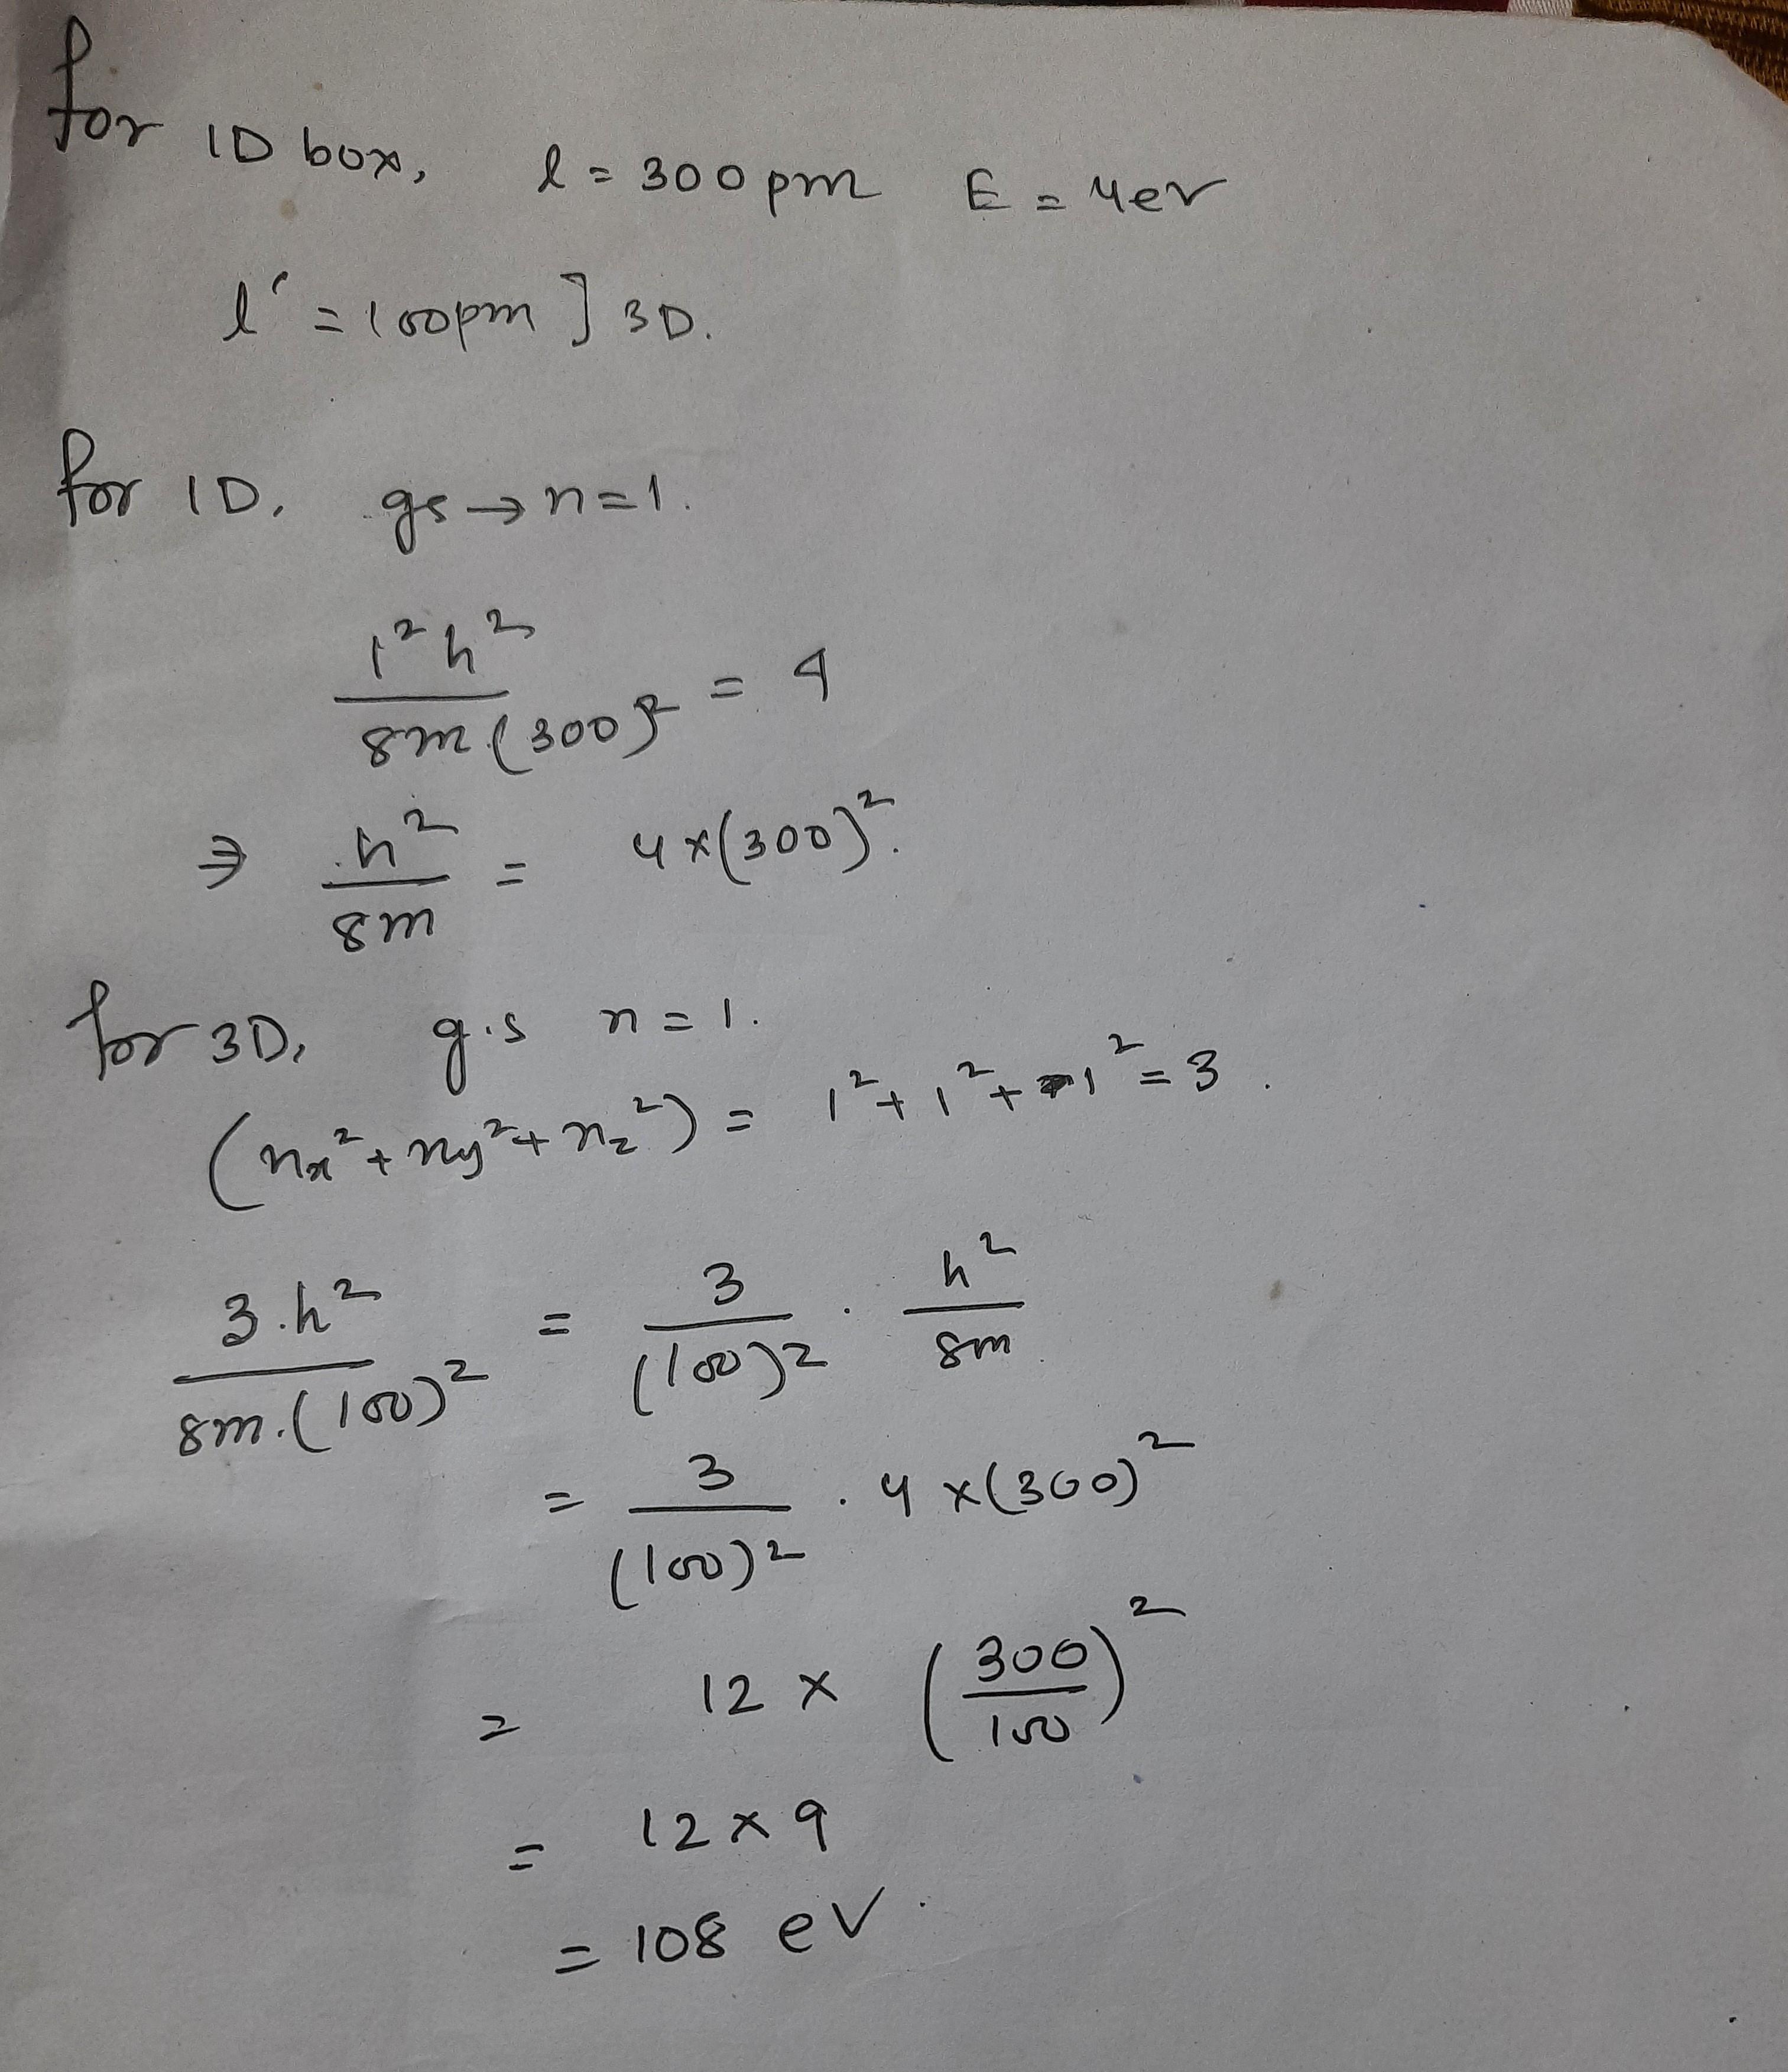 for 1D box, l = 300pm E = 4ev
l' = 100pm ] 3D.
for 1D, gs → n=1.
1²h² / 8m(300)² = 4
⇒ h² / 8m = 4×(300)².
for 3D, g.s n=1.
(nx² + ny² + nz²) = 1² + 1² + 1² = 3.
3.h² / 8m.(100)² = 3 / (100)² . h² / 8m
= 3 / (100)² . 4×(300)²
= 12 × (300 / 100)²
= 12×9
= 108 eV.